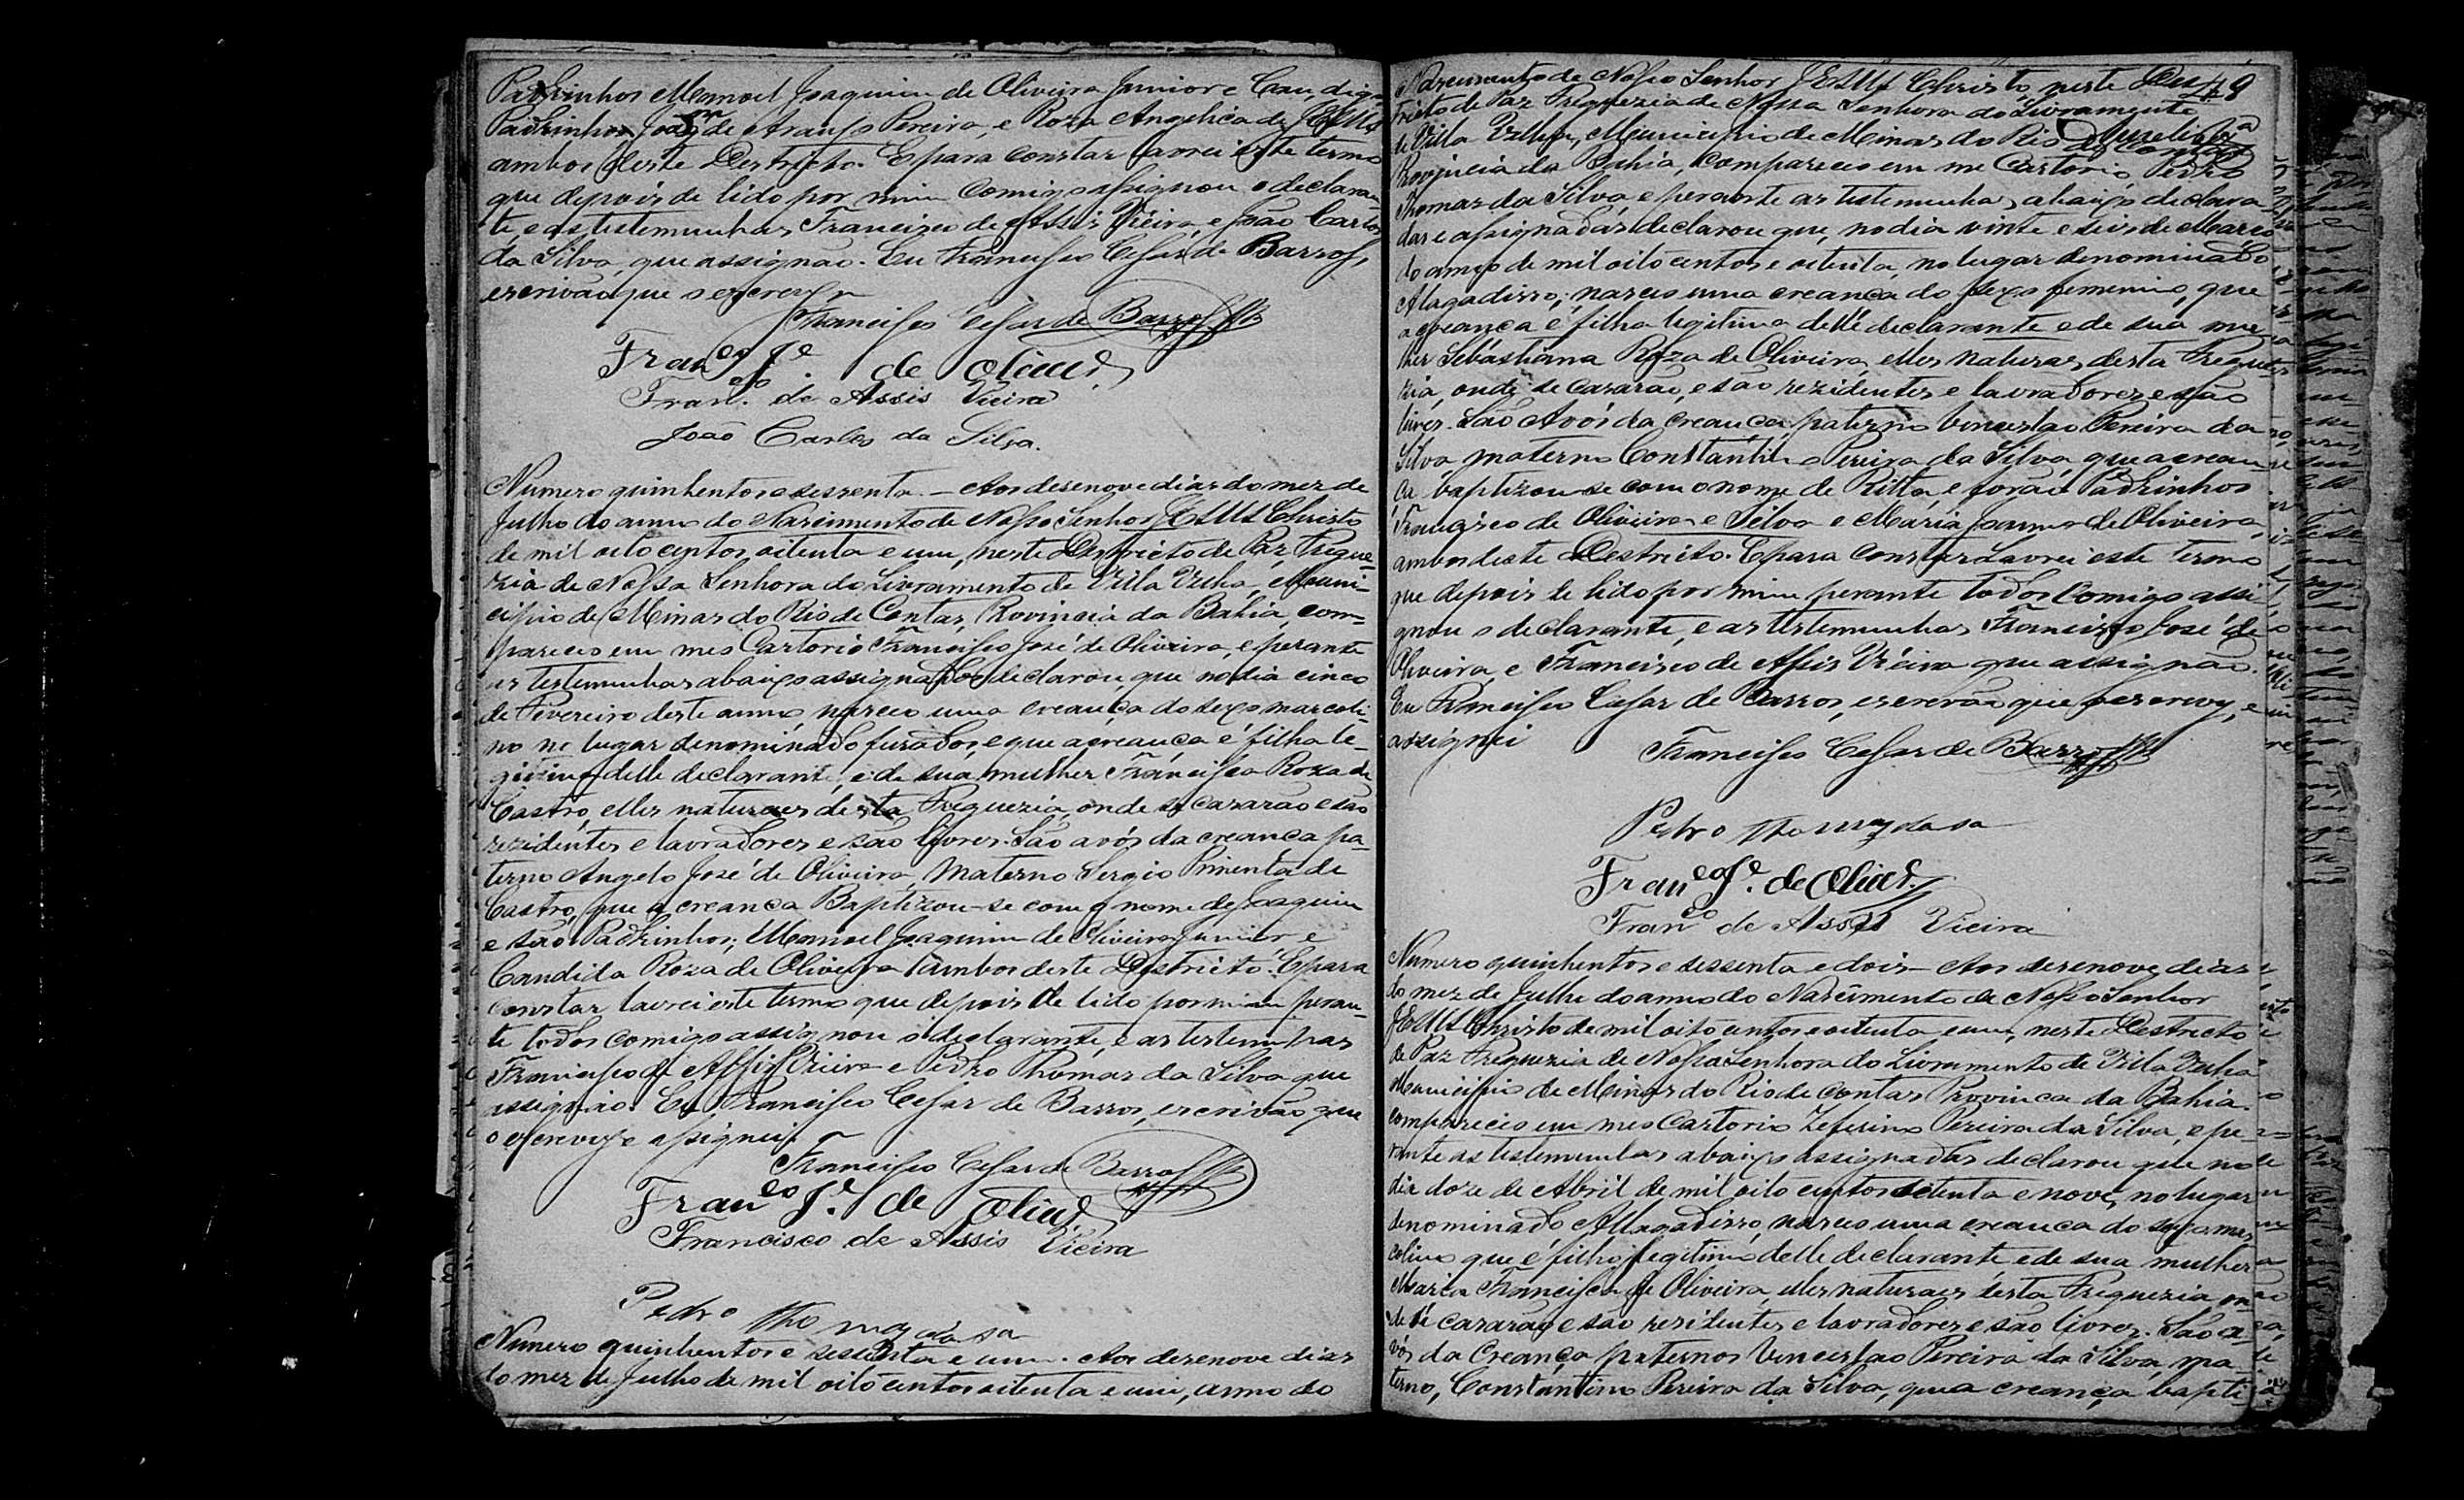 Padrinhos Manoel Joaquim de Oliveira Junior e Cau, digo
Padrinhos, Joaqm de Araujo Pereira, e Roza Angelica de JESUS
ambos deste Destricto. E para constar lavrei este termo
que depois de lido por mim comigo assignou o declaran
te, e as testemunhas Francisco de Assis Vieira, e João Carlos
da Silva, que assignão. Eu Francisco Cesar de Barros,
escrivão que o escrevy
Francisco Cesar de Barros
Franco Je de Olivra
Franco de Assis Vieira
João Carlos da Silva.
Numero quinhentos e sessenta. — Aos desenove dias do mez de
Julho do anno do Nascimento de Nosso Senhor JESUS Christo
de mil oito centos oitenta e um, neste Destricto de Paz, Fregue-
zia de Nossa Senhora do Livramento de Villa Velha, Muni-
cipio de Minas do Rio de Contas, Provincia da Bahia, com-
pareceo em meo Cartorio Francisco José de Oliveira, e perante
as testemunhas abaixo assignados declarou, que no dia cinco
de Fevereiro deste anno, nasceo uma creança do sexo masculi-
no no lugar denominado furados, e que a creança é filha le-
gitima delle declarante, e de sua mulher Francisca Roza de
Castro, elles naturaes desta Freguezia, onde se cazarão e são
rezidentes e lavradores e são livres. São avós da creança pa-
terno Angelo José de Oliveira, Materno Sergio Pimenta de
Castro, que a creança Baptizou-se com o nome de Joaquim
e são Padrinhos; Manoel Joaquim de Oliveira Junior e
Candida Roza de Oliveira ambos deste Destricto. E para
constar lavrei este termo que depois de lido por mim peran-
te todos comigo assignou o declarante, e as testemunhas
Francisco de Assis Vieira e Pedro Thomas da Silva que
assignão. Eu Francisco Cesar de Barros, escrivão que
o escrevy e assignei.
Francisco Cesar de Barros
Franco Je de Olivra
Francisco de Assis Vieira
Pedro Thomaz da Sa
Numero quinhentos e sessenta e um. Aos desenove dias
do mez de Julho de mil oito centos oitenta e um, anno do
Nascimento de Nosso Senhor JESUS Christo, neste Des 49
tricto de Paz Freguezia de Nossa Senhora do Livramento
de Villa Velha, Municipio de Minas do Rio de Contas
Provincia da Bahia, compareceo em meo Cartorio, Pedro
Thomas da Silva, e perante as testemunhas abaixo declara-
das e assignadas declarou que, no dia vinte e seis de Março
do anno de mil oito centos e oitenta, no lugar denominado
Alagadisso; nasceo uma creança do sexo femenino, que
a creança é filha legitima delle declarante e de sua mu
lher Sebastiana Roza de Oliveira, elles naturaes desta Fregue
zia, onde se cazarão, e são rezidentes e lavradores e são
livres. São Avós da creança, paterno Vencesláo Pereira da
Silva, materno Constantino Pereira da Silva, que a crean
ça baptizou-se com o nome de Ritta, e forão Padrinhos
Francisco de Oliveira e Silva e Maria Joanna de Oliveira,
ambos deste Destricto. E para constar Lavrei este termo
que depois de lido por mim perante todos Comigo assi-
gnou o declarante, e as testemunhas Francisco José de
Oliveira, e Francisco de Assis Vieira que assignão.
Eu Francisco Cesar de Barros, escrivão que o escrevy, e
assignei
Francisco Cesar de Barros
Pedro Thomaz da Sa
Franco Je de Olivra
Franco de Assis Vieira
Numero quinhentos e sessenta e dois — Aos desenove dias
do mez de Julho do anno do Nascimento de Nosso Senhor
JESUS Christo de mil oito centos e oitenta e um, neste Destricto
de Paz Freguezia de Nossa Senhora do Livramento de Villa Velha
Municipio de Minas do Rio de Contas Provinca da Bahia.
compareceo em meo Cartorio Zeferino Pereira da Silva, e pe-
rante as testemunhas abaixo assignadas declarou que no
dia doze de Abril de mil oito centos setenta e nove, no lugar
denominado Allagadisso, nasceo uma creança do sexo mas
colino que é filho legitimo delle declarante e de sua mulher
Maria Francisca de Oliveira, elles naturaes desta Freguezia on-
de se cazarão e são rezidentes e lavradores e são livres. São a-
vós da Creança paternos Vencesláo Pereira da Silva, ma
terno, Constantino Pereira da Silva, que a creança bapti-